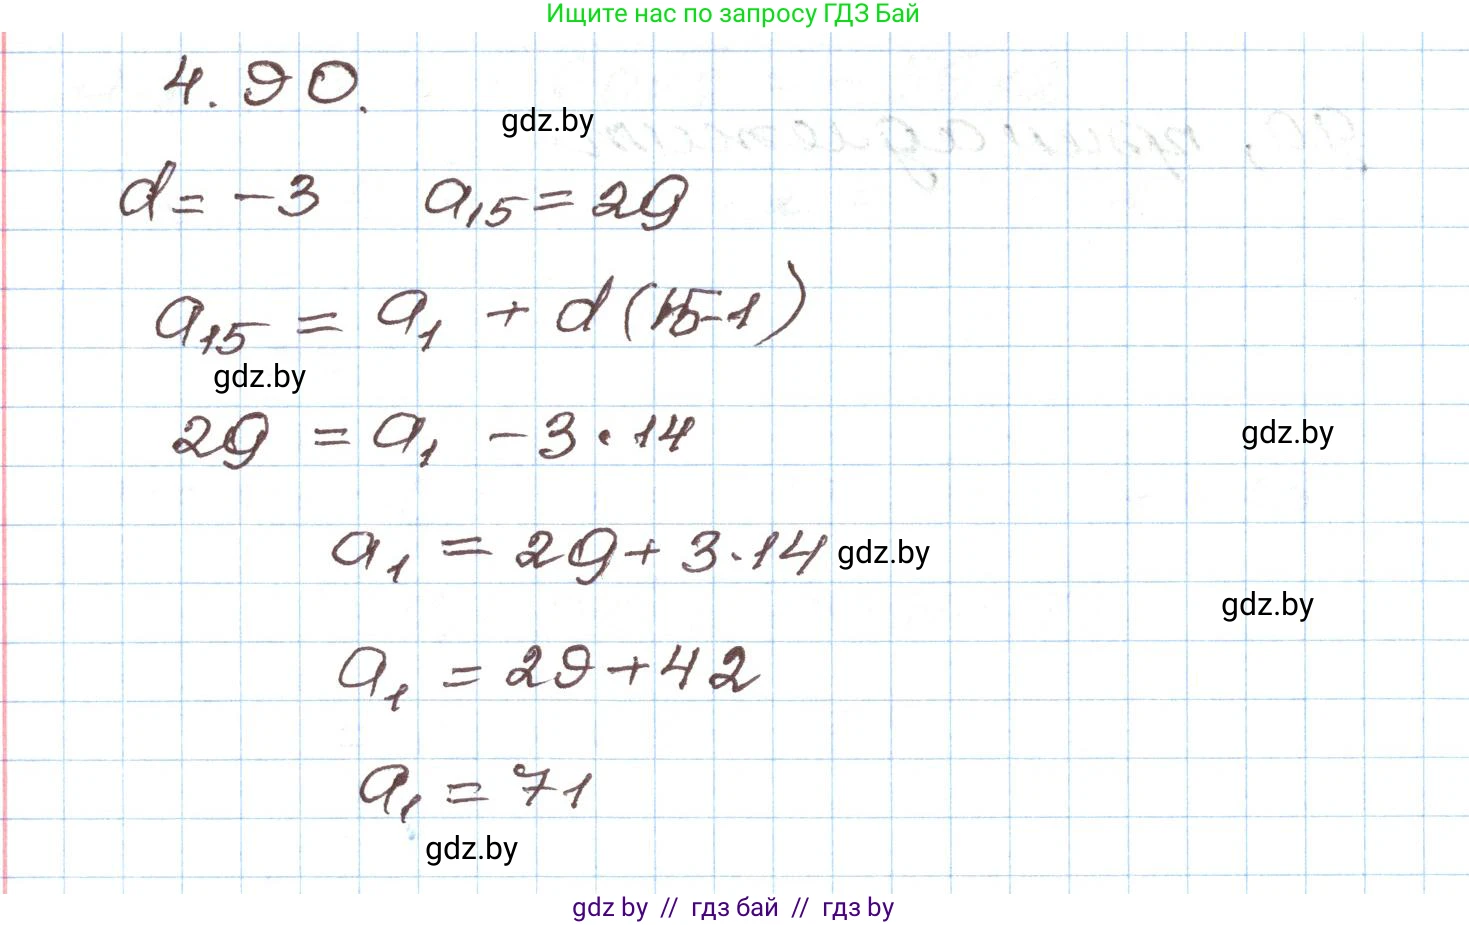 Ищите нас по запросу ГДЗ Бай
4.90.
gdz.by
d = -3 a₁₅ = 29
a₁₅ = a₁ + d(15-1)
gdz.by
29 = a₁ - 3·14
gdz.by
a₁ = 29 + 3·14 gdz.by
gdz.by
a₁ = 29 + 42
a₁ = 71
gdz.by
gdz by // гдз бай // гдз by